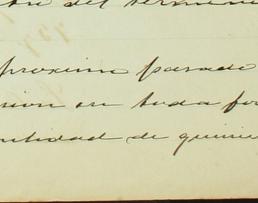 del
proximo pasado
sion en toda for
ntidad de quinie